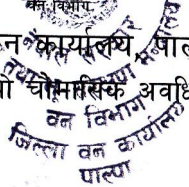 वन विभाग
न कार्यालय, पाल
यो चौमासिक अवधि
वन विभाग
जिल्ला वन कार्यालय
पाल्पा